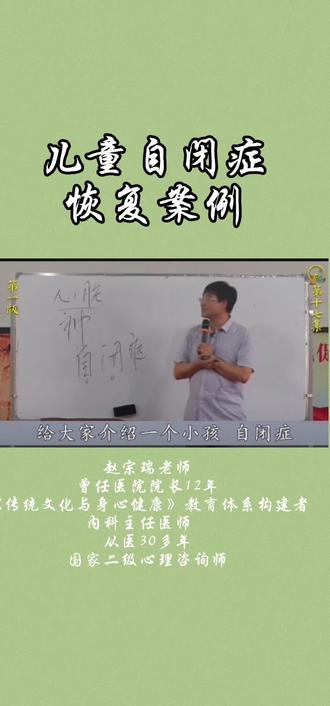 儿童自闭症
恢复案例
第一版
第十七集
心脏
神
自闭症
给大家介绍一个小孩 自闭症
赵宗瑞老师
曾任医院院长12年
《传统文化与身心健康》教育体系构建者
内科主任医师
从医30多年
国家二级心理咨询师